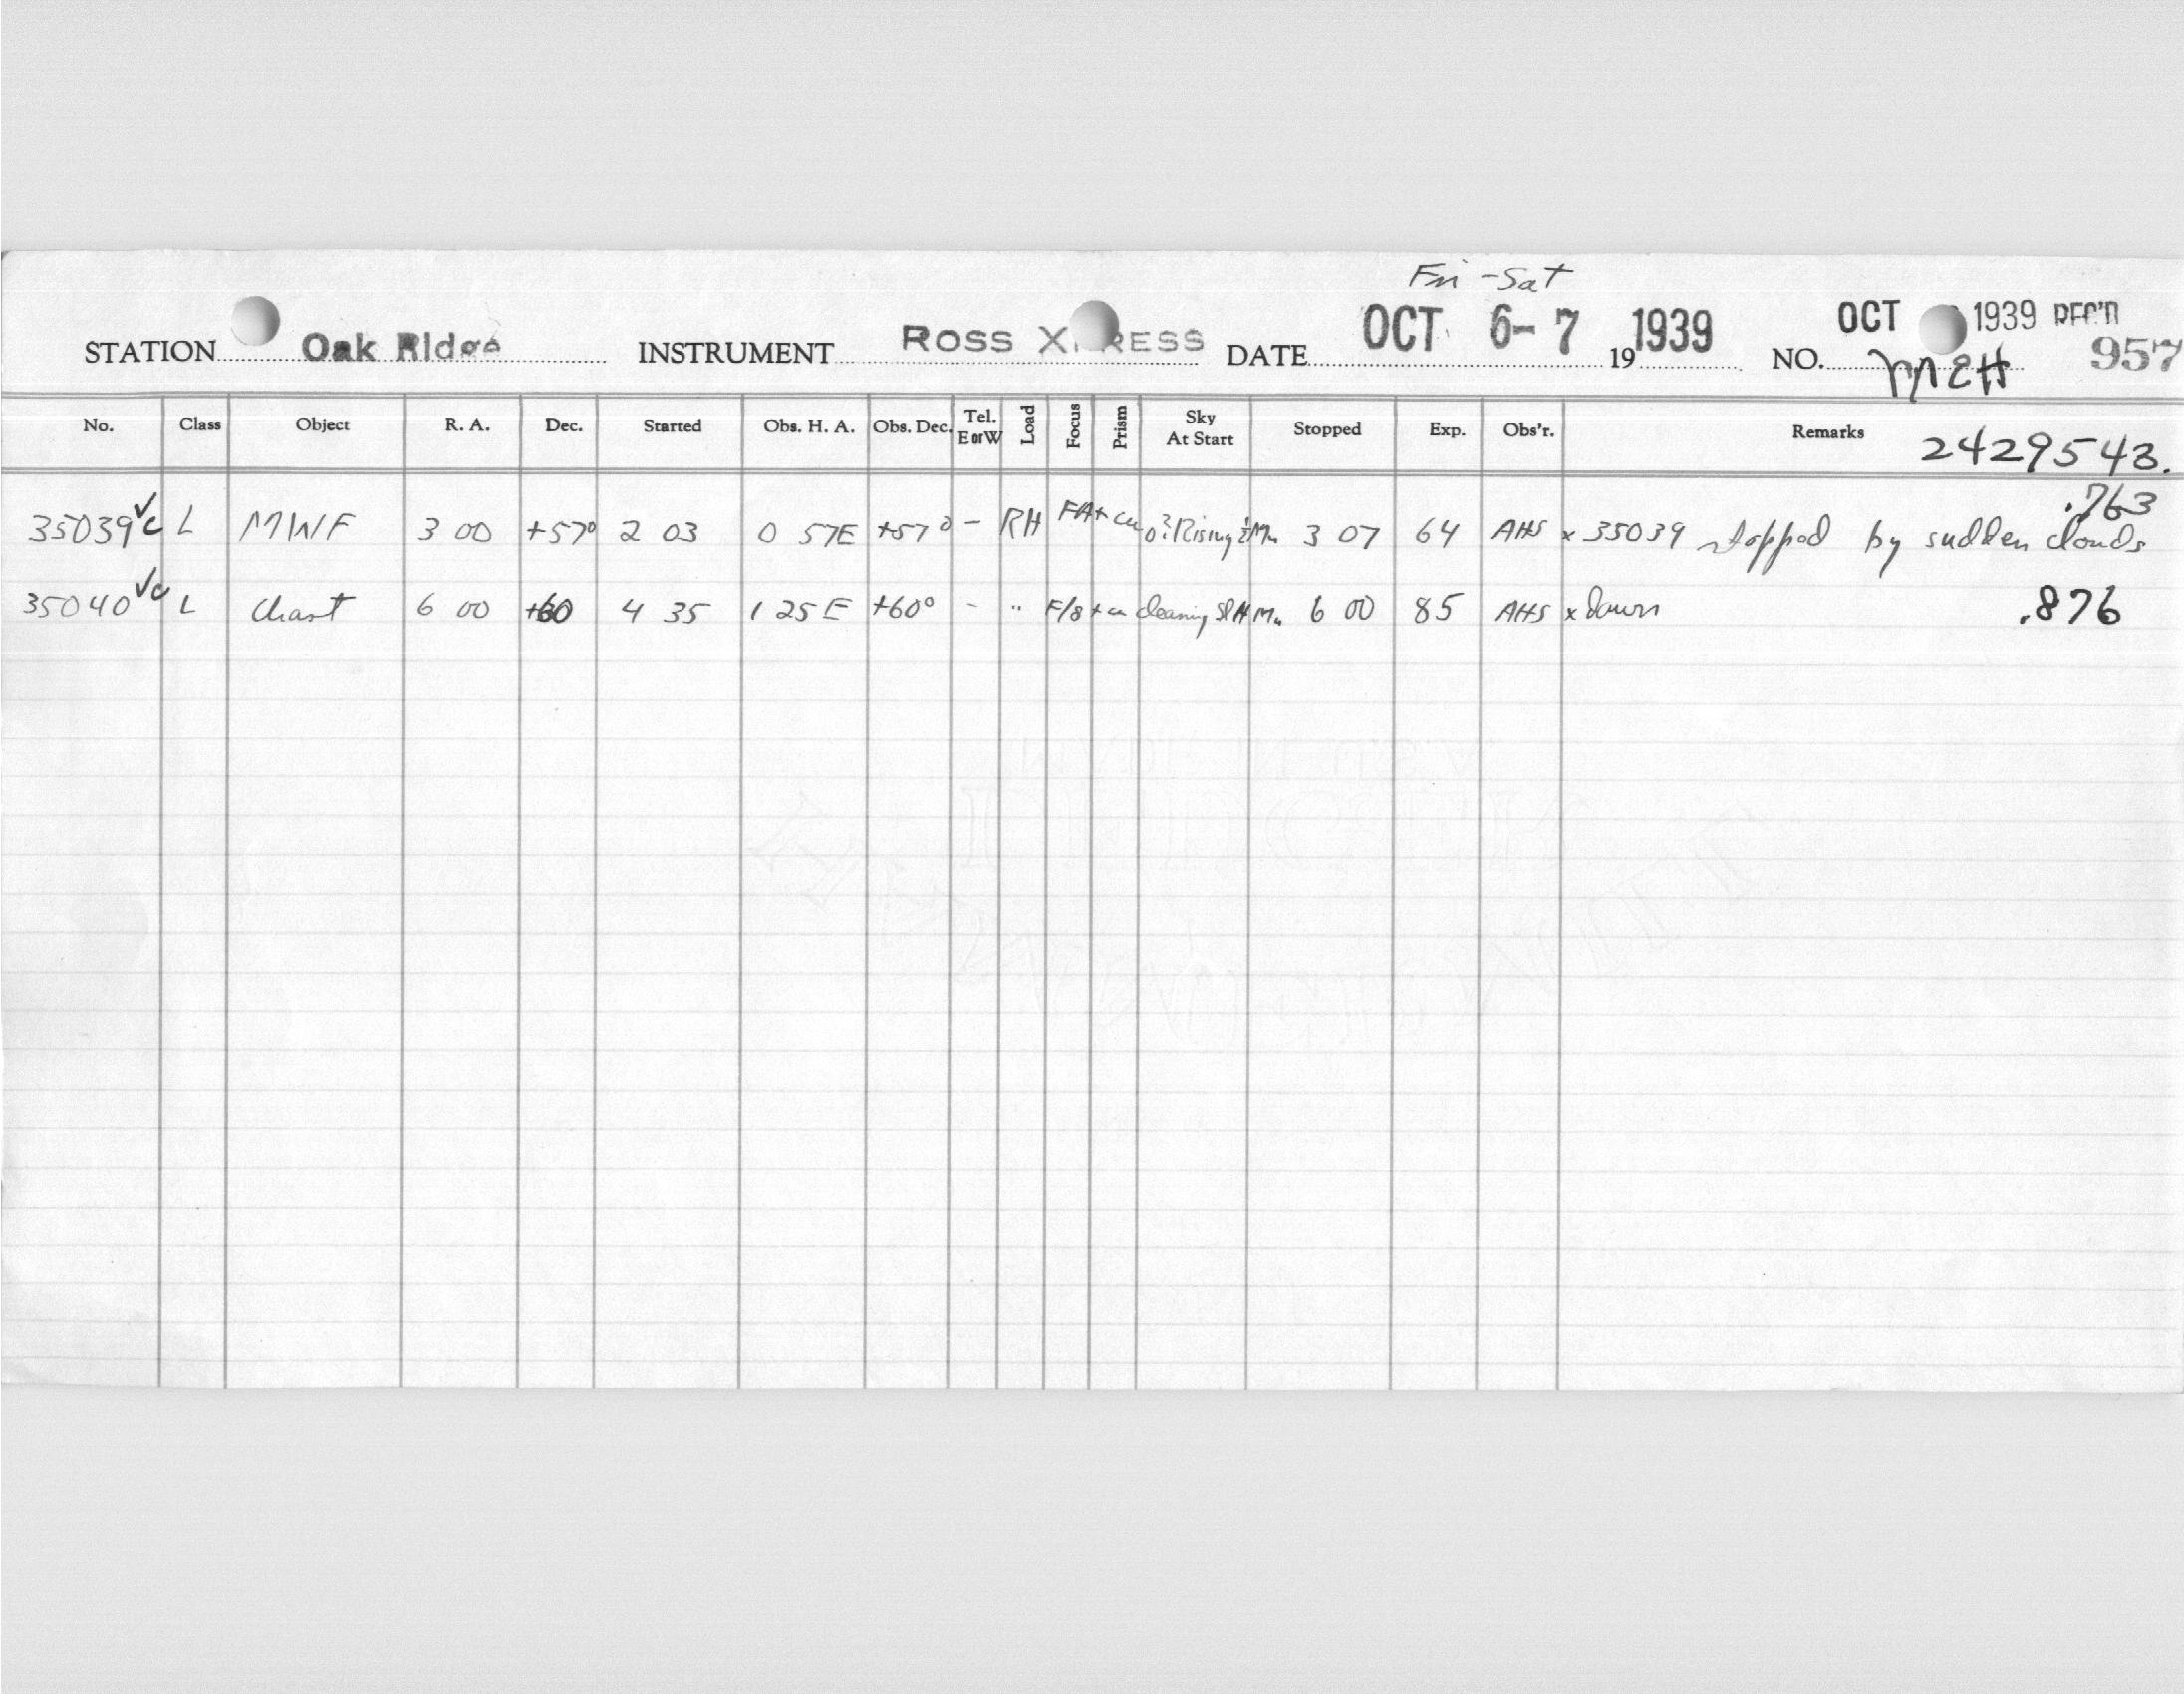 Fri - Sat
STATION Oak Ridge INSTRUMENT ROSS X RESS DATE OCT 6-7 19 1939 NO. OCT 1939 REC'D
MEH 957
No. Class Object R. A. Dec. Started Obs. H. A. Obs. Dec. Tel. E or W Load Focus Prism Sky At Start Stopped Exp. Obs'r. Remarks 2429543.
.763
35039 L MWF 3 00 +57° 2 03 0 57E +57° - RH Rising 3 07 64 AHS x 35039 stopped by sudden clouds
35040 L Chart 6 00 +60 4 35 1 25 E +60° - " F/8 + clearing 6 00 85 AHS x dawn .876